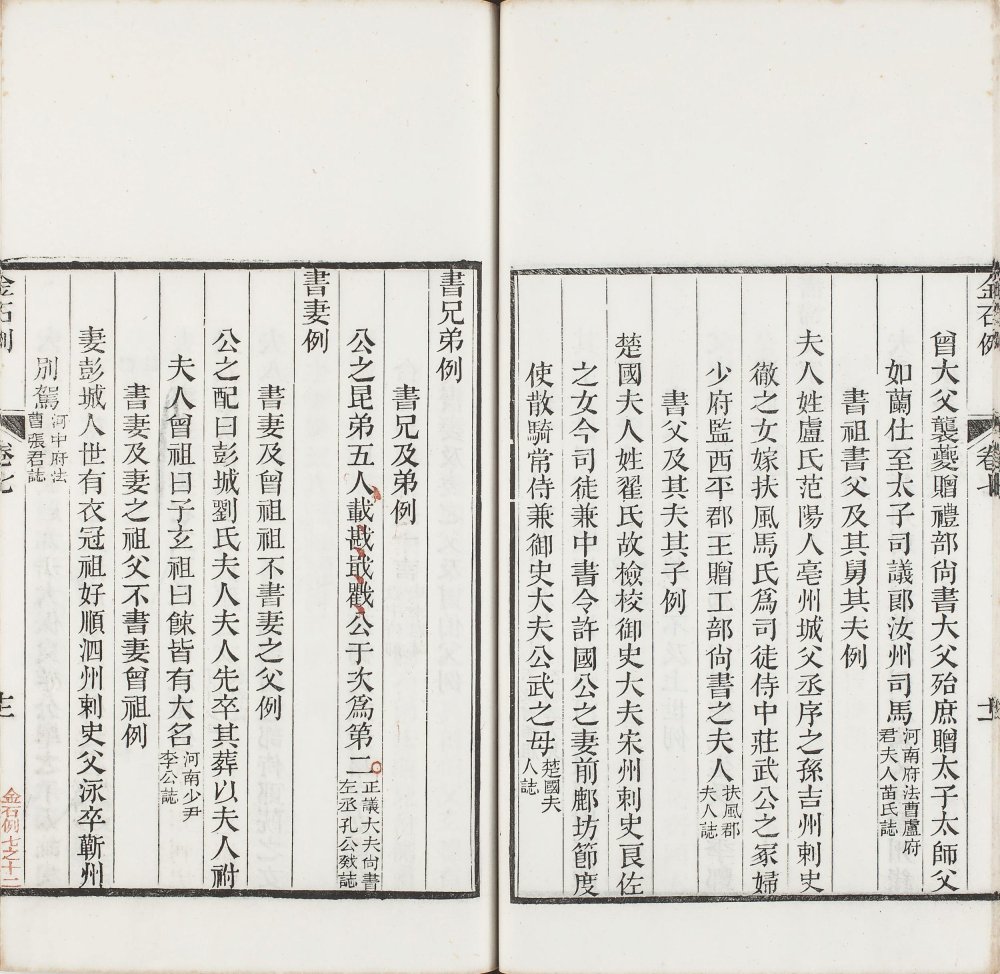 金石例
卷七
十一
曾大父襲夔贈禮部尙書大父殆庶贈太子太師父
如蘭仕至太子司議郞汝州司馬河南府法曹盧府君夫人苗氏誌
書祖書父及其舅其夫例
夫人姓盧氏范陽人亳州城父丞序之孫吉州刺史
徹之女嫁扶風馬氏爲司徒侍中莊武公之冢婦
少府監西平郡王贈工部尙書之夫人扶風郡夫人誌
書父及其夫其子例
楚國夫人姓翟氏故檢校御史大夫宋州刺史良佐
之女今司徒兼中書令許國公之妻前鄜坊節度
使散騎常侍兼御史大夫公武之母楚國夫人誌
書兄弟例
書兄及弟例
公之昆弟五人載戡戢戵公于次爲第二正議大夫尙書左丞孔公誌
書妻例
書妻及曾祖祖不書妻之父例
公之配曰彭城劉氏夫人夫人先卒其葬以夫人祔
夫人曾祖曰子玄祖曰餗皆有大名河南少尹李公誌
書妻及妻之祖父不書妻曾祖例
妻彭城人世有衣冠祖好順泗州刺史父泳卒蘄州
別駕河中府法曹張君誌
金石例
卷七
金石例七之十二